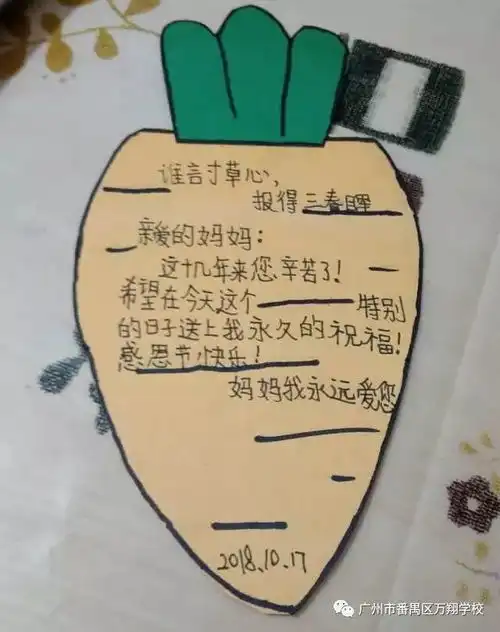 谁言寸草心，
报得三春晖
亲爱的妈妈：
这十几年来您辛苦了！
希望在今天这个 特别
的日子送上我永久的祝福！
感恩节快乐！
妈妈我永远爱您
2018.10.17
广州市番禺区万翔学校